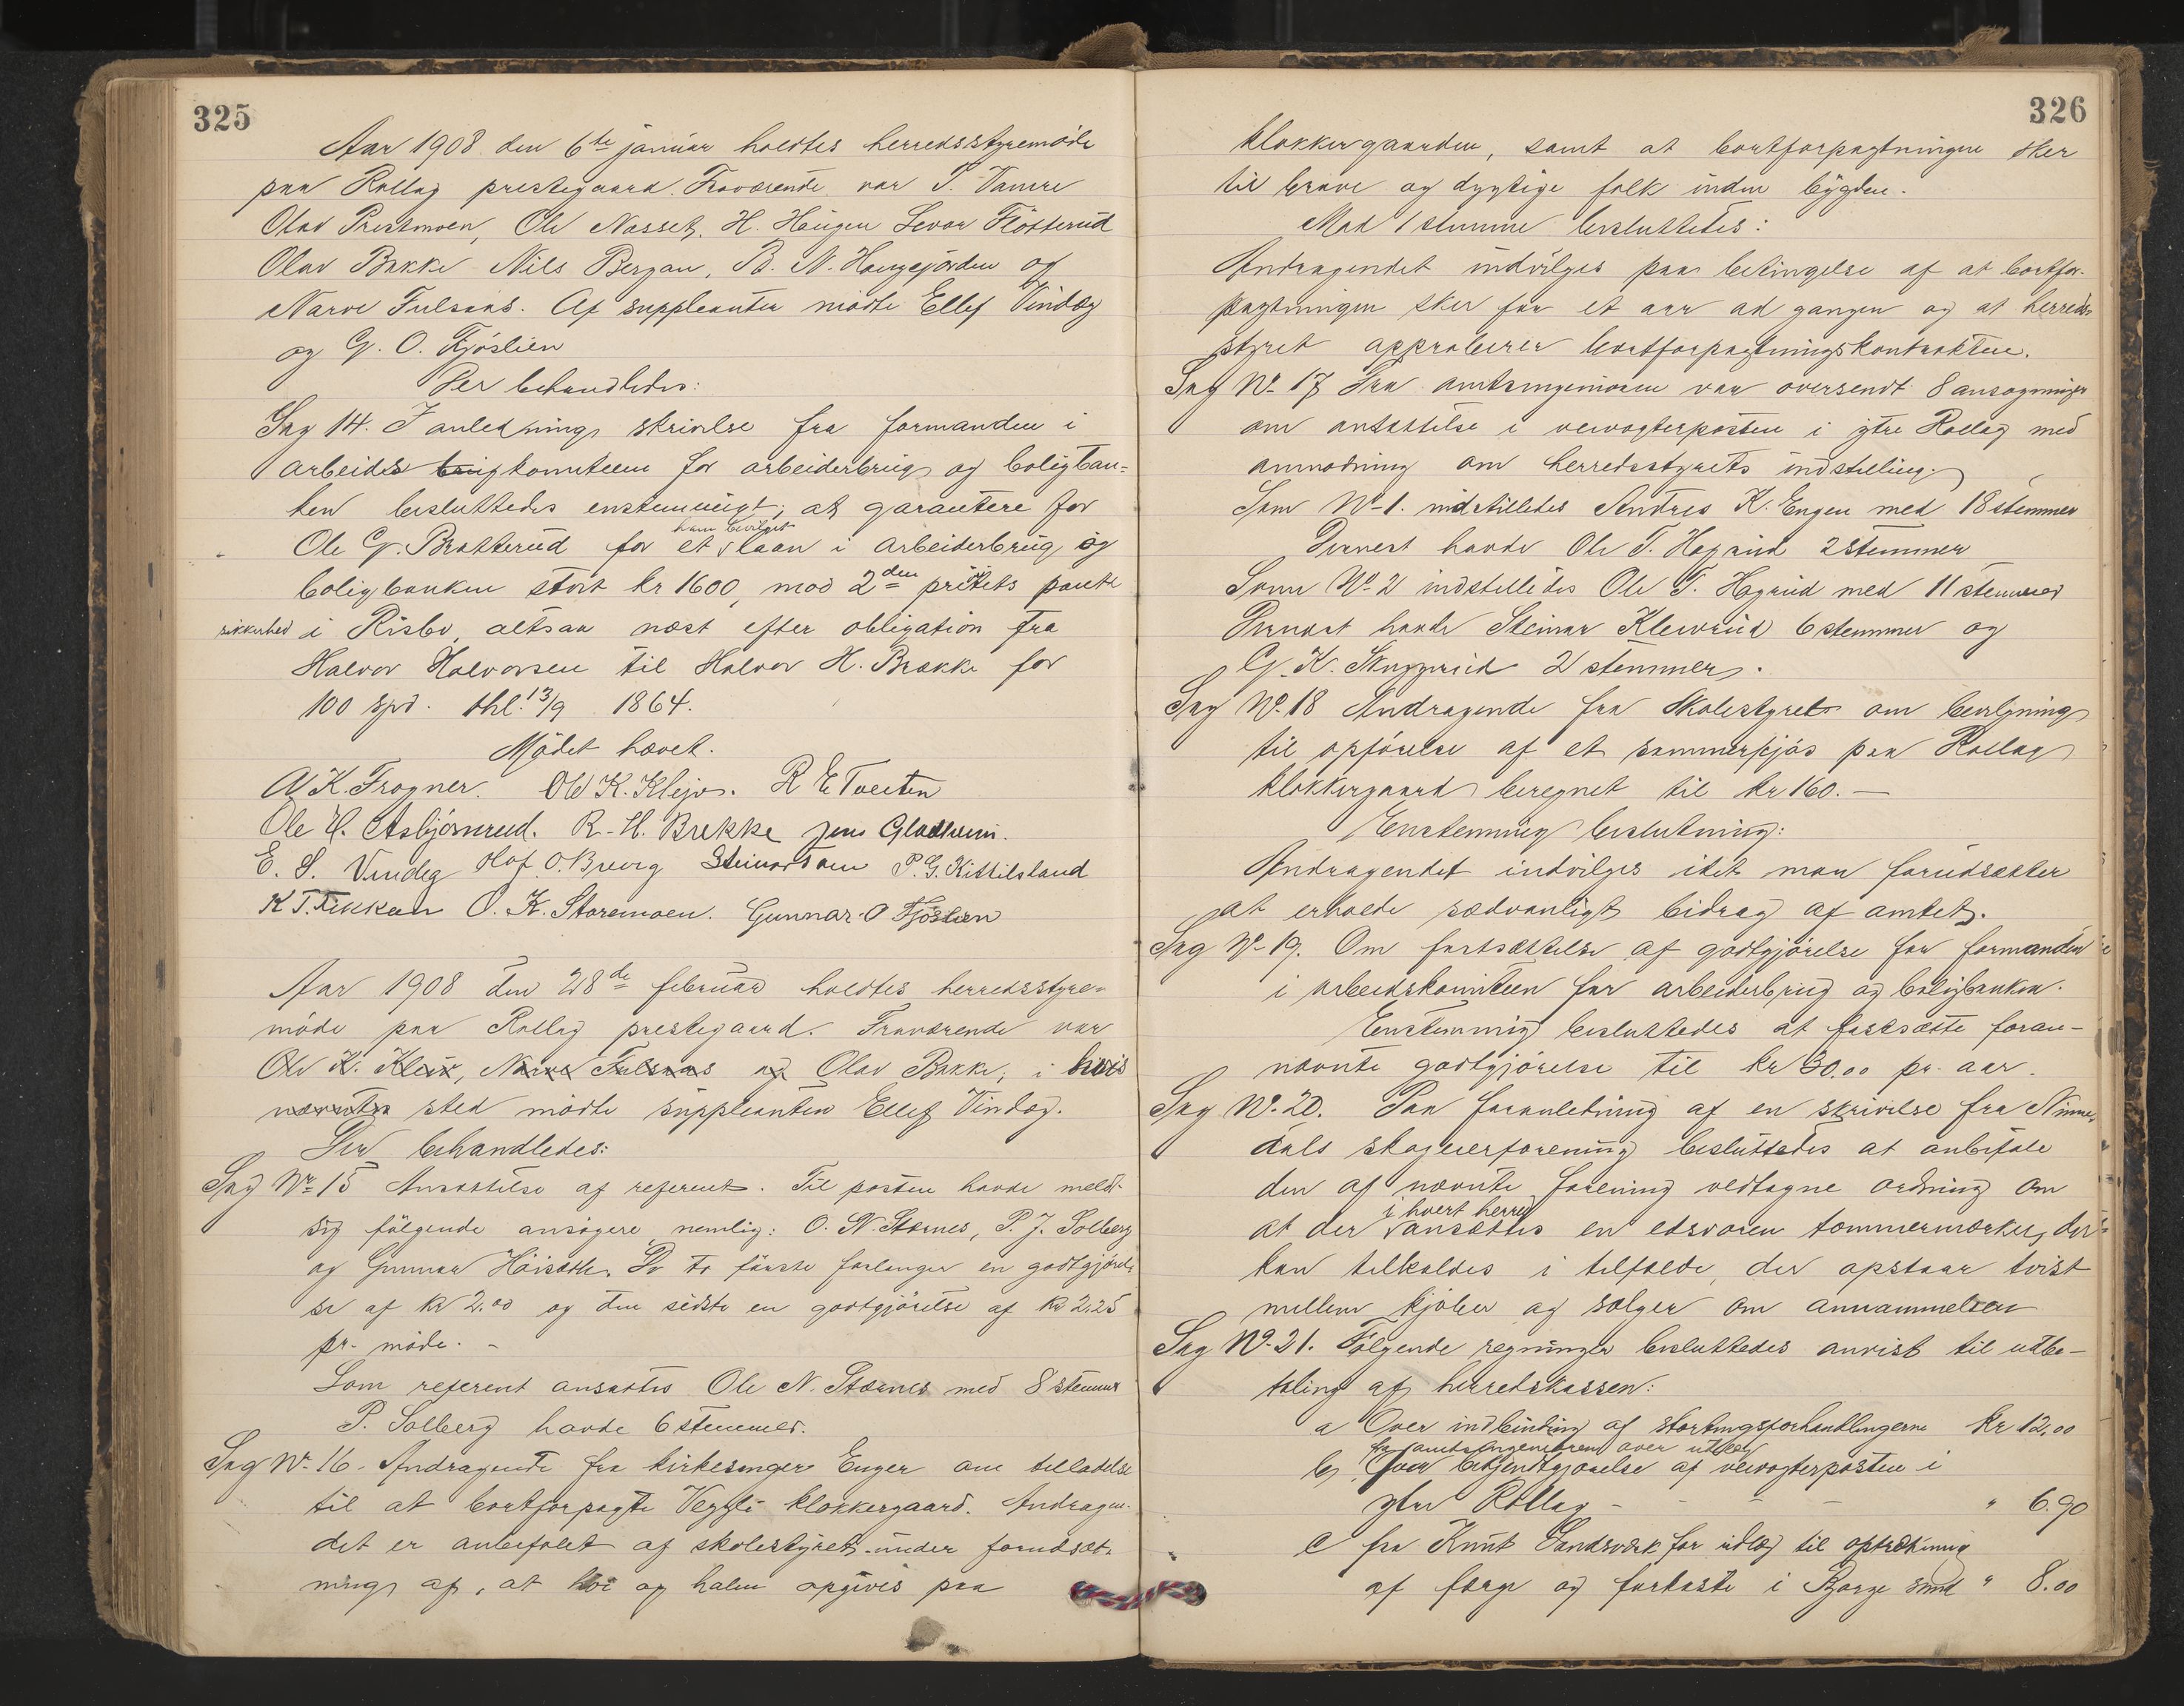 325
Aar 1908 den 6te januar holdtes herredsstyremøde
paa Rollag prestegaard. Fraværende var P. Vamre
Olav Prestmoen, Ole Næsset, H. Haugen Levor Fløtterud
Olav Bakke Nils Bergan, B. N. Haugejorden og
Narve Fulsaas. Af suppleanter mødte Ellef Vindeg
og G. O. Fjøslien
Der behandledes:
Sag 14. I anledning skrivelse fra formanden i
arbeids brug komiteen for arbeiderbrug og boligban-
ken besluttedes enstemmigt; at garantere for
ham bevilget
Ole G. Bratterud for et laan i Arbeiderbrug og
boligbanken stort kr 1600, mod 2den pritets pante
sikkerhed i Risbo, altsaa næst efter obligation fra
Halvor Halvorsen til Halvor H. Brække for
100 spd. thl. 13/9 1864.
Mødet hævet.
A K. Frogner. Ole K. Klejv. R E Tveiten
Ole H. Asbjørnrud. R. H. Brekke Jens Gladheim.
E. S. Vindeg Olaf O. Breeg Steinar Tam P. G. Kittilsland
K T. Tekkan O. K. Storemoen. Gunnar O Fjøslien
Aar 1908 den 28de februar holdtes herredsstyre-
møde paa Rollag prestegaard. Fraværende var
Ole K. Kleiv, Narve Fulsaas og Olav Bakke, i hvis
nævnte sted mødte suppleanten Ellef Vindeg.
Der behandledes:
Sag Nr 15 Ansættelse af referent. Til posten havde meldt
sig følgende ansøgere nemlig: O. N. Stærnes, P. J. Solberg
og Gunnar Høisæth. De to første forlanger en godtgjørel-
se af kr 2.00 og den sidste en godtgjørelse af kr 2.25
pr. møde. -
Som referent ansattes Ole N. Stærnes med 8 stemmer
P. Solberg havde 6 stemmer.
Sag Nr 16. Andragende fra kirkesanger Enger om tilladelse
til at bortforpagte Veggli klokkergaard. Andragen-
det er anbefalet af skolestyret under forudsæt-
ning af, at høi og halm opgives paa
326
klokkergaarden, samt at bortforpagtningen sker
til brave og dygtige folk inden bygden.
Mod 1 stemme besluttedes:
Andragendet indvilges paa betingelse af at bortfor-
pagtningen sker for et aar ad gangen og at herreds-
styret approberer bortforpagtningskontrakten.
Sag No 17 Fra amtsingeniøren var oversendt 8 ansøgninger
om ansættelse i veivogterposten i ytre Rollag med
anmodning om herredsstyrets indstilling.
Som No 1. indstilledes Andres K. Engen med 18 stemmer
Dernest havde Ole T. Høgrud 2 stemmer
Som No 2 indstilledes Ole T. Høgrud med 11 stemmer
Dernæst havde Steinar Kleivrud 6 stemmer og
G. K. Skuggrud 2 stemmer.
Sag No 18 Andragende fra Skolestyret om bevilgning
til opførelse af et sommerfjøs paa Rollag
klokkergaard beregnet til kr 160.—
Enstemmig beslutning:
Andragendet indvilges idet man forudsætter
at erholde sædvanligt bidrag af amtet.
Sag No 19. Om fastsættelse af godtgjørelse for formanden
i arbeidskomiteen for arbeiderbrug og boligbanken.
Enstemmig besluttedes at fastsætte foran-
nævnte godtgjørelse til kr 30.00 pr. aar.
Sag No 20. Paa foranledning af en skrivelse fra Nume-
dals skogeierforening besluttedes at anbefale
den af nævnte forening vedtagne ordning om
i hvert herred
at der ansættes en edsvoren tømmermærker, der
kan tilkaldes i tilfælde, der opstaar tvist
mellem kjøber og sælger om annammelsen
Sag No 21. Følgende regninger besluttedes anvist til udbe-
taling af herredskassen:
a Over indbinding af stortingsforhandlingerne kr 12,00
fra amtsingeniøren over utlæg
b, Over bekjendtgjørelse af veivogterposten i
ytre Rollag - - - - " 6.90
c fra Knut Sandsværk for utlæg til optrækning
af færge og forkaste i Borge sund " 8.00